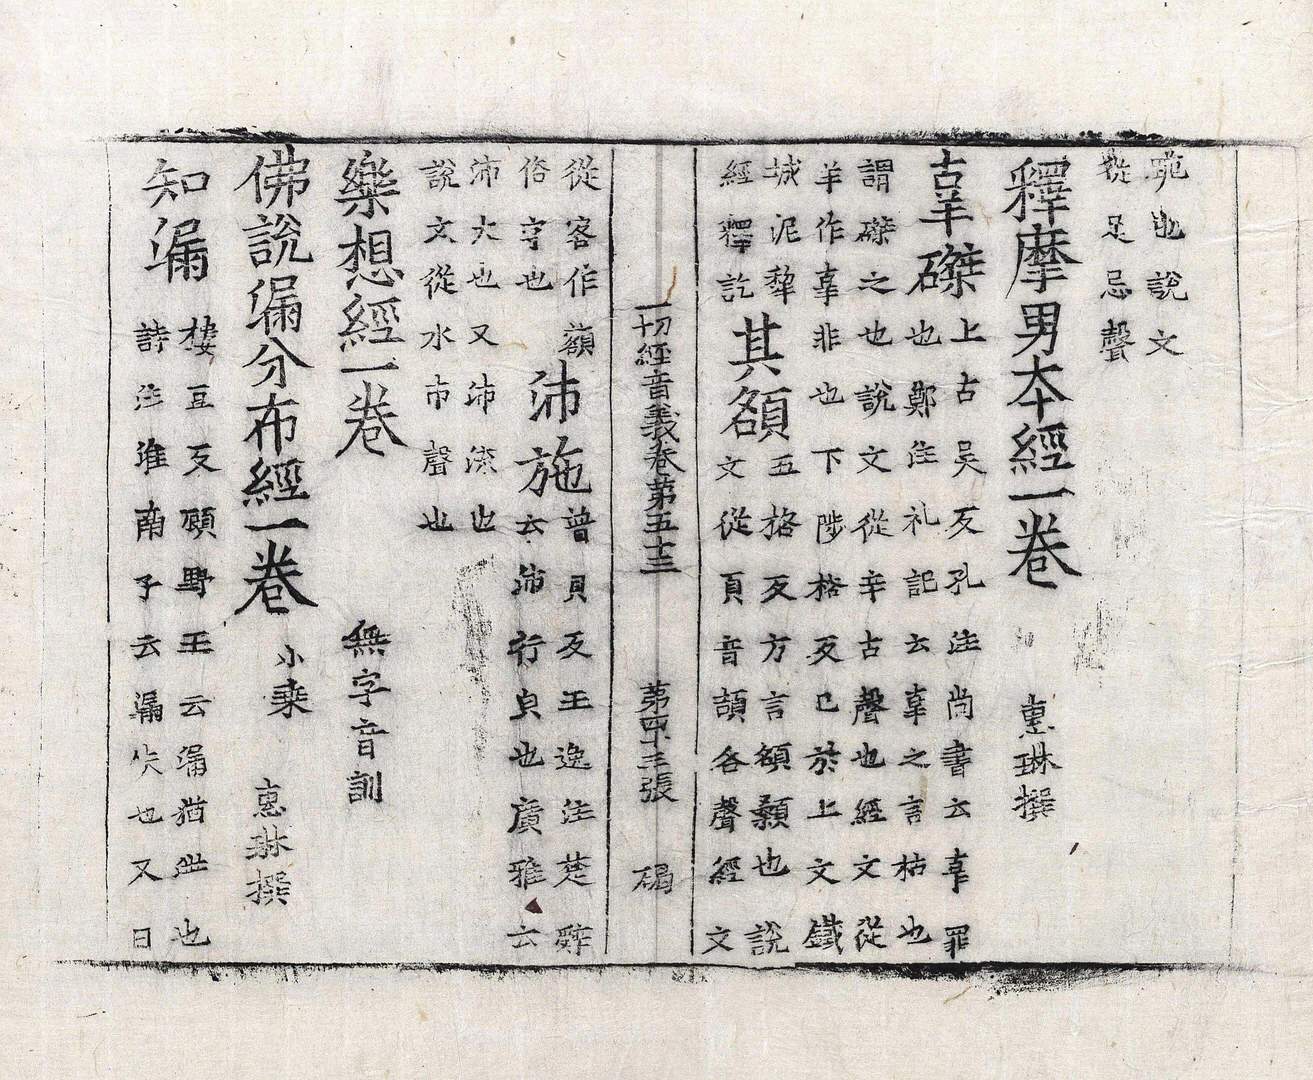 也說文
從足忌聲
釋摩男本經一卷 惠琳撰
辜磔 上古吳反孔注尚書云辜罪
也鄭注礼記云辜之言枯也
謂磔之也說文從辛古聲也經文從
羊作辜非也下陟格反已於上文鐵
城泥犁
經釋訖
其額 五挌反方言額顙也說
文從頁音頡各聲經文
一切經音義卷第五十三 第四十三張 碣
從客作額
俗字也
沛施 普貝反王逸注楚辭
云沛行皃也廣雅云
沛大也又沛流也
說文從水巿聲也
樂想經一卷 無字音訓
佛說漏分布經一卷 小乗 惠琳撰
知漏 樓豆反顧野王云漏猶泄也
詩注淮南子云漏失也又曰